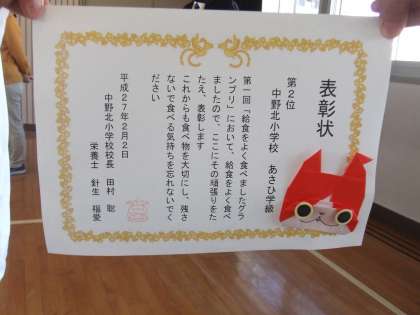 表彰状
第2位
中野北小学校　あさひ学級
第一回「給食をよく食べましたグラ
ンプリ」において、給食をよく食べ
ましたので、ここにその頑張りをた
たえ、表彰します
これからも食べ物を大切にし、残さ
ないで食べる気持ちを忘れないでく
ださい
平成27年2月2日
中野北小学校校長　田村　聡
栄養士　針生　福愛